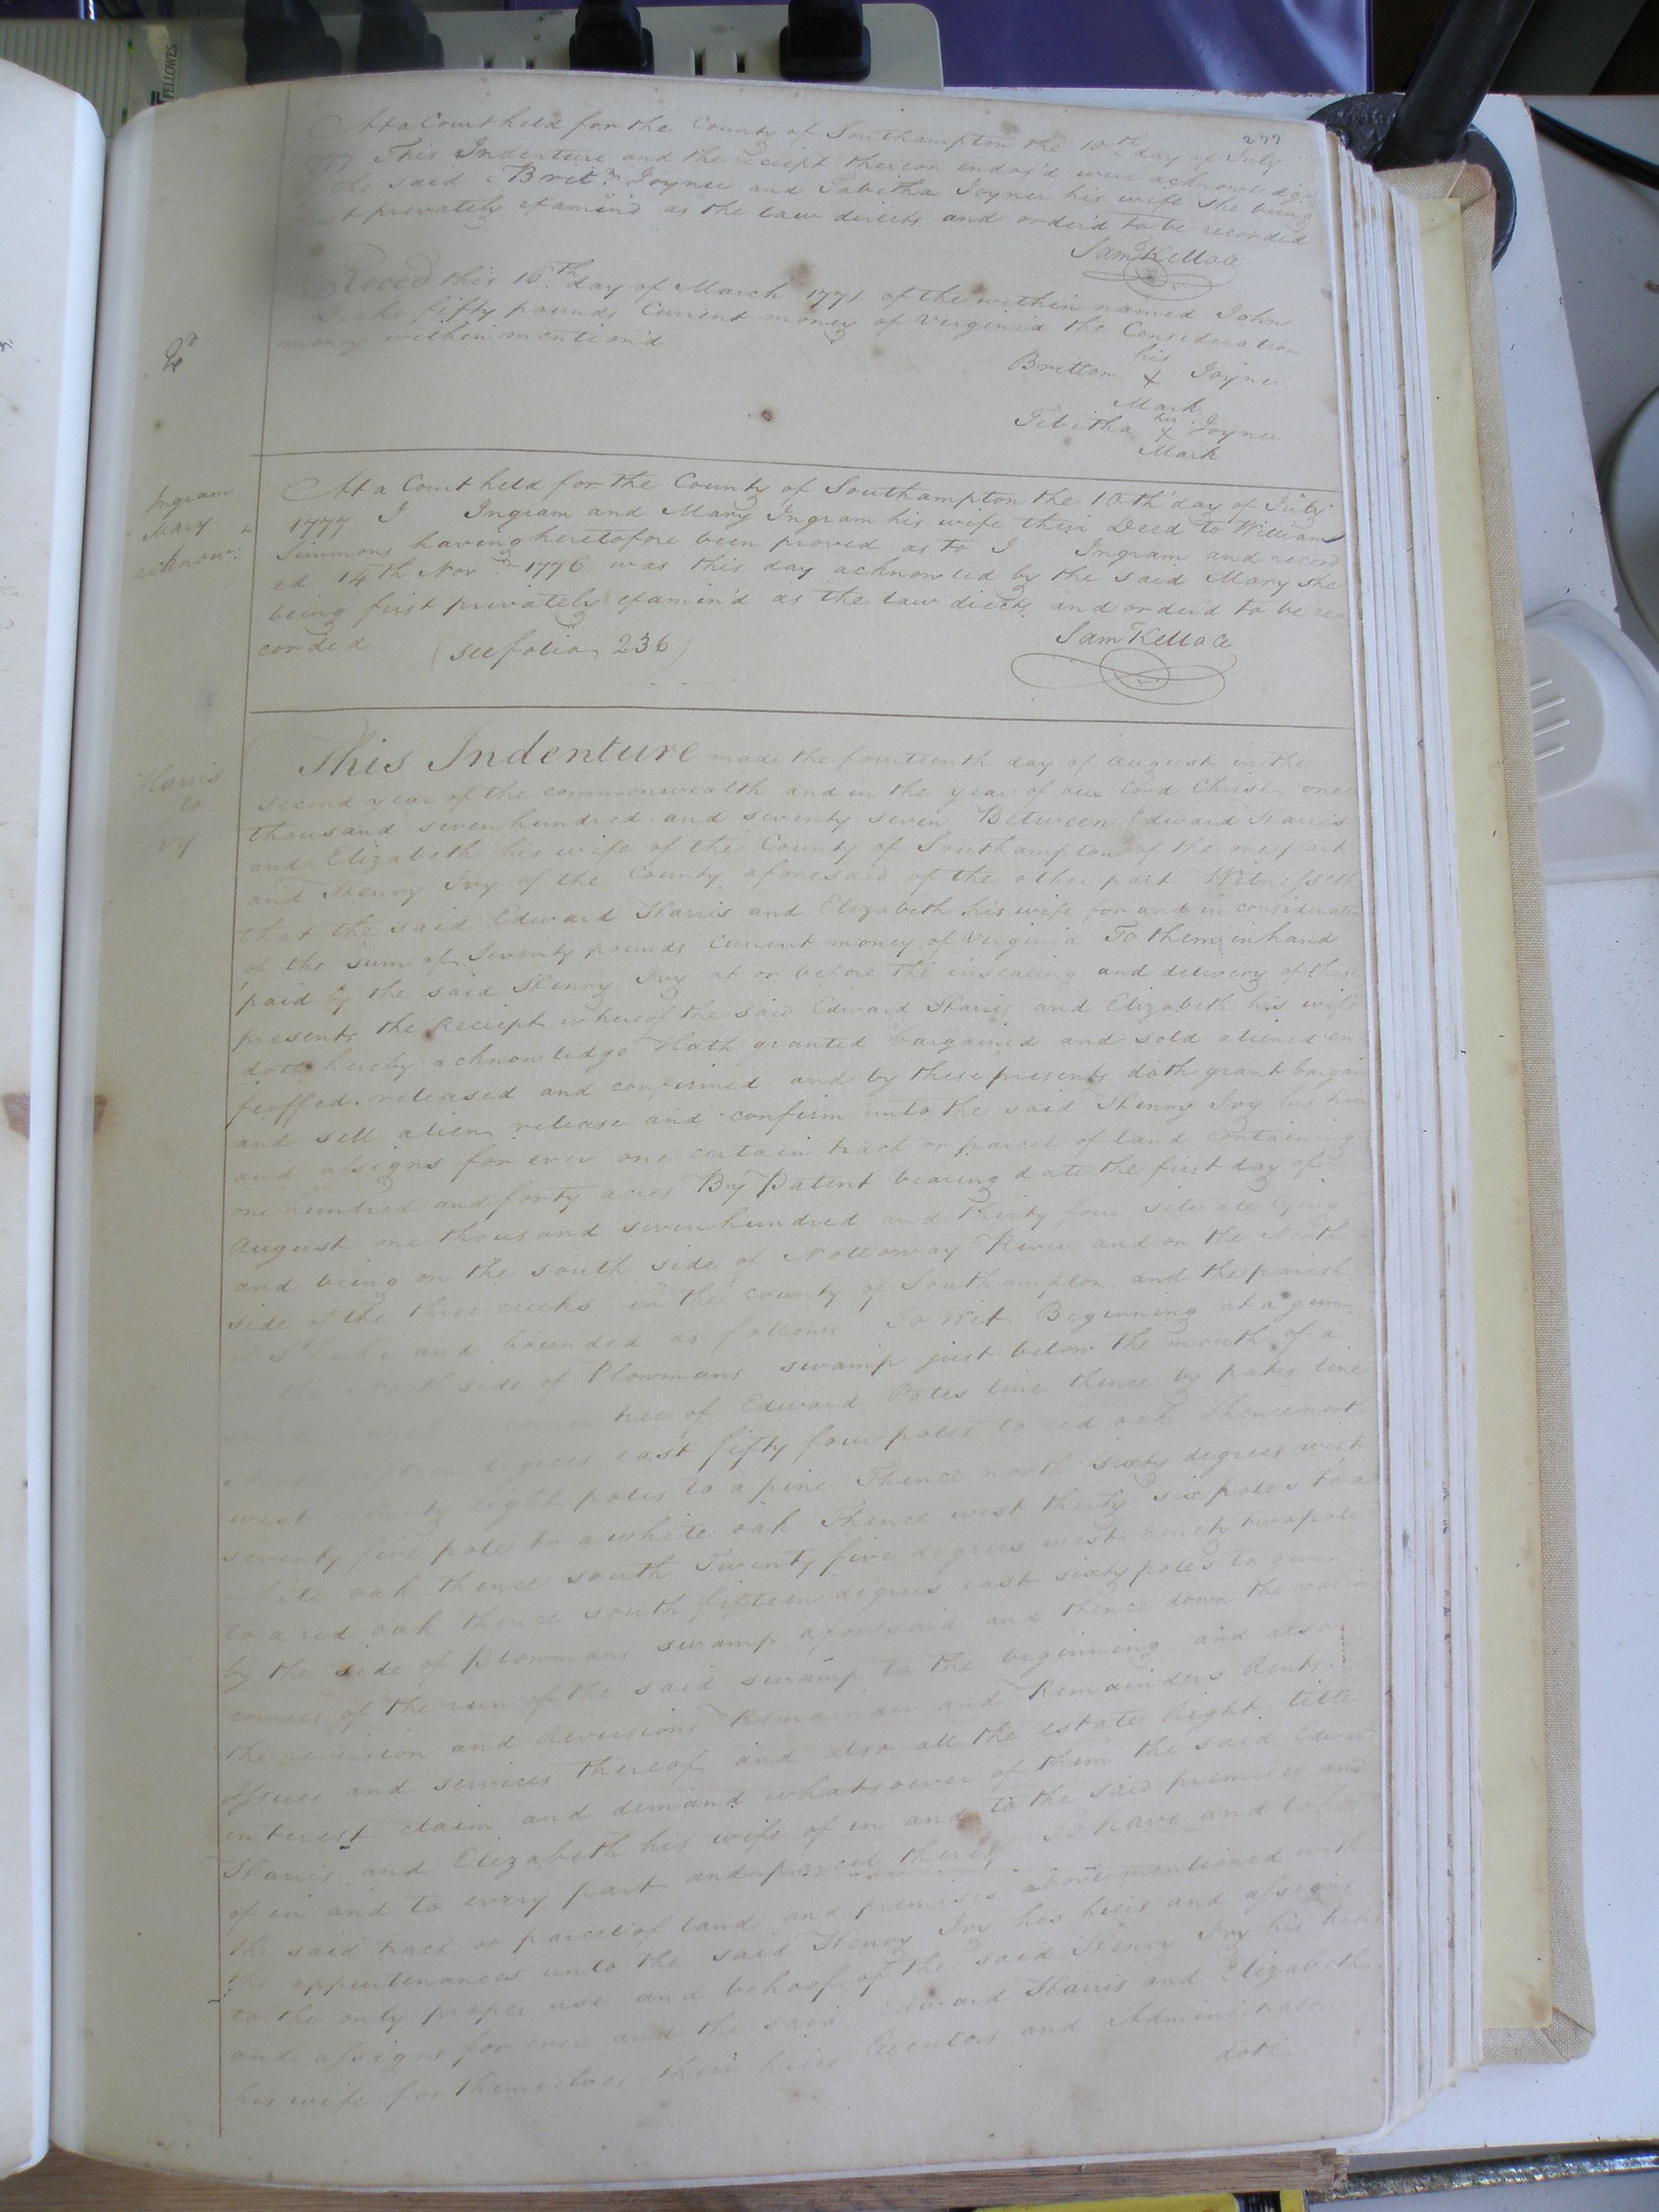 FELLOWES
277
At a Court held for the County of Southampton the 10th day of July
1777 This Indenture and the reciept thereon endors'd were acknowledged
the said Brit.n Joyner and Tabitha Joyner his wife she being
first privately examin'd as the law directs and order'd to be recorded
Sam Kello Cl
Reced this 16th day of March 1771 of the within named John
fifty pounds Current money of Virginia the Consideration
money within mention'd
his
Britton X Joyner
Mark
her
Tabitha X Joyner
Mark
Ingram
Mary
acknow:
At a Court held for the County of Southampton the 10th day of July
1777 J Ingram and Mary Ingram his wife their Deed to William
Simmons having heretofore been proved as to J Ingram and record
ed 14th Novr 1776 was this day acknowled by the said Mary she
being first privately examin'd as the law directs and order'd to be re
corded (see folio 236)
Sam Kello Cl
Harris
to
Ivy
This Indenture made the fourteenth day of august in the
second year of the commonwealth and in the year of our Lord Christ one
thousand seven hundred and seventy seven Between Edward Harris
and Elizabeth his wife of the County of Southampton of the one part
and Henry Ivy of the County aforesaid of the other part Witnesseth
that the said Edward Harris and Elizabeth his wife for and in consideration
of the sum of Seventy pounds Current money of Virginia To them in hand
paid by the said Henry Ivy at or before the insealing and delivery of these
presents the Receipt whereof the said Edward Harris and Elizabeth his wife
doth hereby acknowledge Hath granted bargained and sold aliened en
feoffed released and confirmed and by these presents doth grant bargain
and sell alien release and confirm unto the said Henry Ivy his heirs
and assigns for ever one certain tract or parcel of land containing
one hundred and forty acres By Patent bearing date the first day of
August one thousand seven hundred and thirty four situate lying
and being on the south side of Nottoway River and on the North
side of the three creeks in the county of Southampton and the parish
of St Luke and bounded as follows To Wit Beginning at a gum
the North side of Plowmans swamp just below the mouth of a
small branch a corner tree of Edward Pates line thence by pates line
North fifteen degrees east fifty four poles to red oak Thence north
west eight poles to a pine Thence north sixty degrees west
seventy five poles to a white oak Thence west thirty six poles to a
white oak thence south Twenty five degrees west ninety two poles
to a red oak thence south fifteen degrees east sixty poles to gum
by the side of Plowmans swamp aforesaid and thence down the various
courses of the run of the said swamp to the beginning and also
the reversion and Reversions Remainder and Remainders Rents
Issues and services thereof and also all the estate Right title
interest claim and demand whatsoever of them the said Edward
Harris and Elizabeth his wife of in and to the said premises and
of in and to every part and parcel thereof To have and to hold
the said tract or parcel of land and premises above mentioned with
the appurtenances unto the said Henry Ivy his heirs and assigns
to the only proper use and behoof of the said Henry Ivy his heirs
and assigns for ever and the said Edward Harris and Elizabeth
his wife for themselves their heirs Executors and Administrators
doth